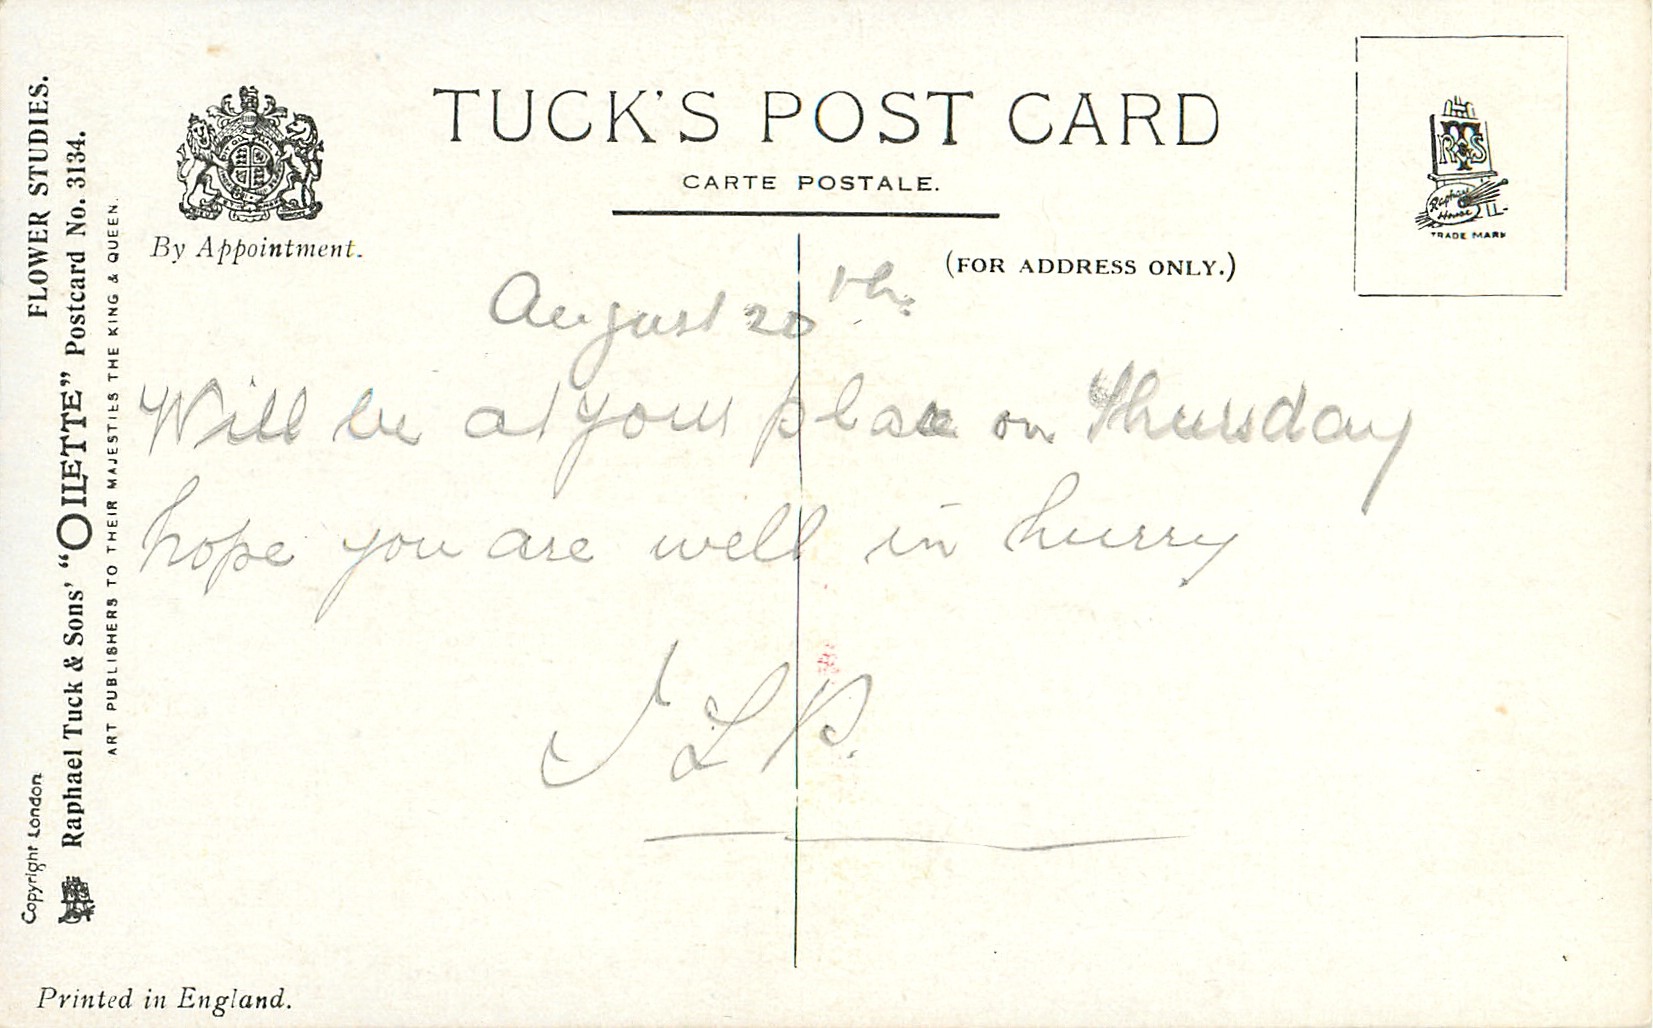 FLOWER STUDIES.
Raphael Tuck & Sons' "OILETTE" Postcard No. 3134.
ART PUBLISHERS TO THEIR MAJESTIES THE KING & QUEEN.
Copyright London
By Appointment.
TUCK'S POST CARD
CARTE POSTALE.
(FOR ADDRESS ONLY.)
RTS
Raphael
House
TRADE MARK
August 20th.
Will be at your place on Thursday
hope you are well in hurry
I L P.
Printed in England.